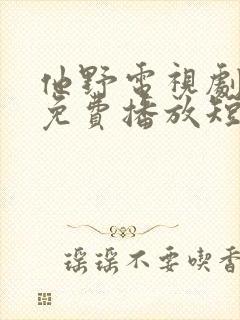 他野電視劇
免費播放短
瑶瑶不要喫香